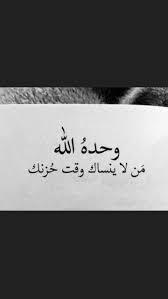 وحدهُ الله
مَن لا ينساك وقت حُزنك